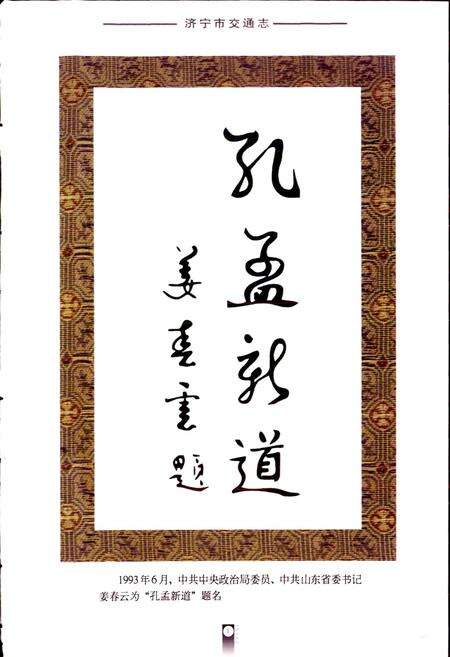 济宁市交通志
孔孟新道
姜春雲題
1993年6月，中共中央政治局委员、中共山东省委书记
姜春云为“孔孟新道”题名